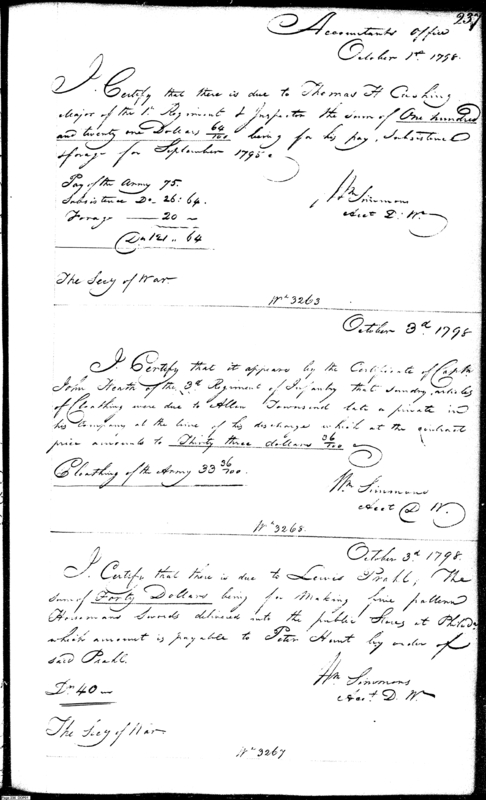 237
Accountants Office
October 1st 1798.
I. Certify that there is due to Thomas H Cushing
Major of the 1st Regiment & Inspector the sum of One hundred
and twenty one Dollars 64/100 being for his pay, Subsistence
forage for September 1798.
Pay of the Army 75.
Subsistence Do 26.64.
Forage 20
Ds 121.. 64
Wm Simmons
Acct D. W.
The Secy of War.
Wt 3263
October 3d 1798
I. Certify that it appears by the Certificate of Captn
John Heath of the 3d Regiment of Infantry that sundry articles
of Cloathing were due to Allen Townsend late a private in
his Company at the time of his discharge which at the contract
price amounts to Thirty three dollars 36/100
Cloathing of the Army 33 36/100.
Wm Simmons
Acct D W.
Wt 3268.
October 3d 1798
I. Certify that there is due to Lewis Prahl, The
sum of Forty Dollars being for Making five pattern
Horsemans Swords delivered into the public Stores at Philada
which amount is payable to Peter Hunt by order of
said Prahl.
Drs 40
Wm Simmons
Acct D. W.
The Secy of War
Wt 3267